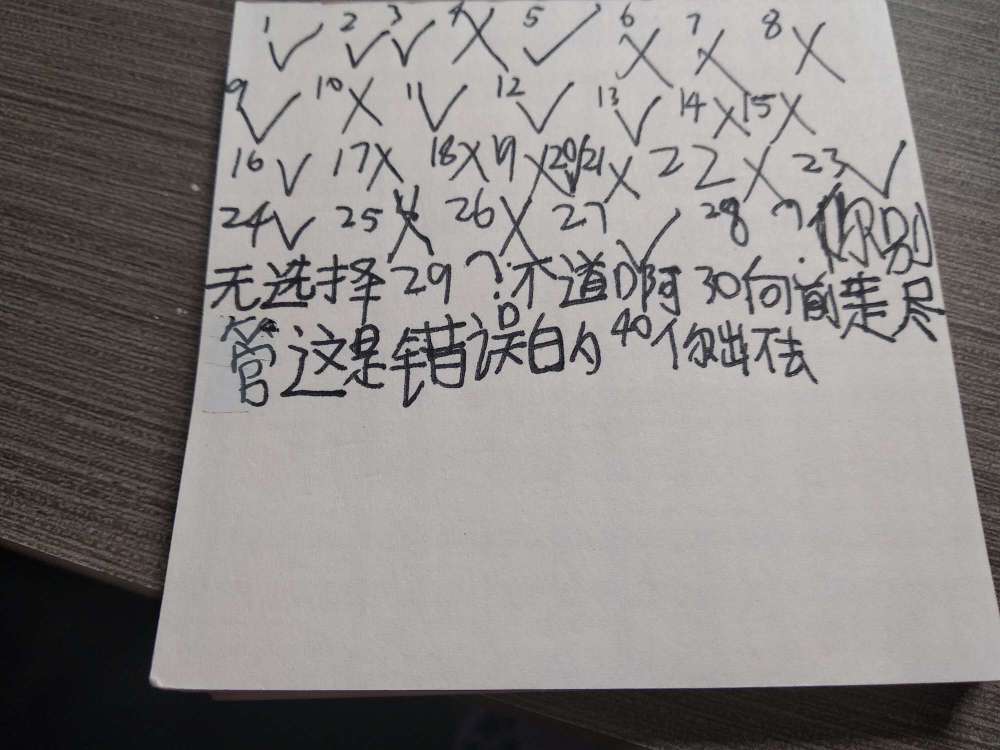 1 ✓ 2 ✓ 3 ✓ 4 ✗ 5 ✓ 6 ✗ 7 ✗ 8 ✗
9 ✓ 10 ✗ 11 ✓ 12 ✓ 13 ✓ 14 ✗ 15 ✗
16 ✓ 17 ✗ 18 ✗ 19 ✗ 20 ✓ 21 ✗ 22 ✗ 23 ✓
24 ✓ 25 ✗ 26 ✗ 27 ✓ 28 ? 你别
无选择 29 ? 不道D阿 30 向前走尽
管这是错误的 40 你出不去